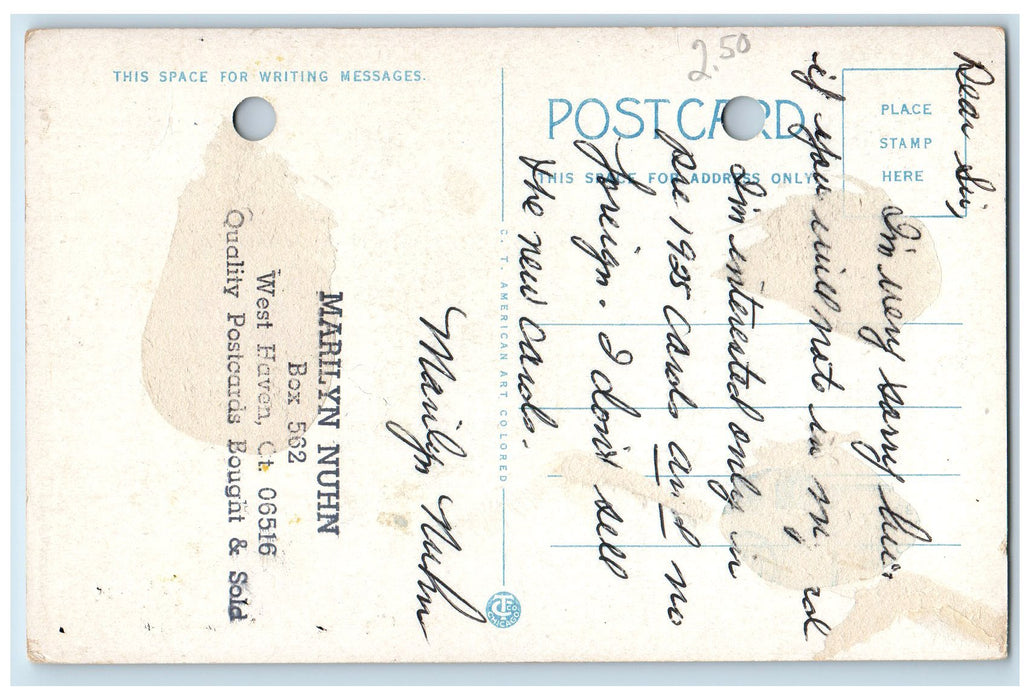 THIS SPACE FOR WRITING MESSAGES.
2.50
POSTCARD
THIS SPACE FOR ADDRESS ONLY
PLACE
STAMP
HERE
C. T. AMERICAN ART COLORED
CHICAGO
Dear Sir,
I'm very sorry but
if you will note in my ad
I'm interested only in
pre 1925 cards and no
foreign. I don't sell
the new cards.
Marilyn Nuhn
MARILYN NUHN
Box 562
West Haven, Ct. 06516
Quality Postcards Bought & Sold